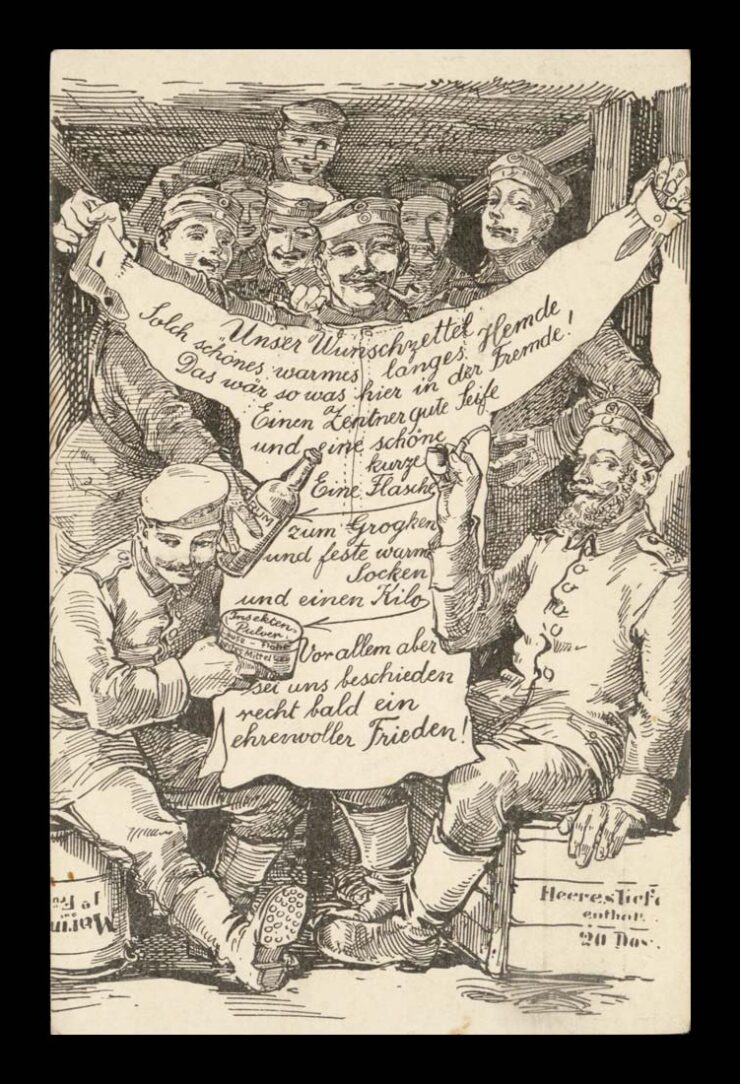 Unser Wunschzettel
Solch schönes warmes langes Hemde
Das wär so was hier in der Fremde!
Einen Zentner gute Seife
und eine schöne
kurze
Eine Flasche
RUM
zum Grogken
und feste warm
Socken
und einen Kilo
Insekten
Pulver
Mittel
Vor allem aber
sei uns beschieden
recht bald ein
ehrenvoller Frieden!
Heereslief
enthal.
20 Dos.
Marin